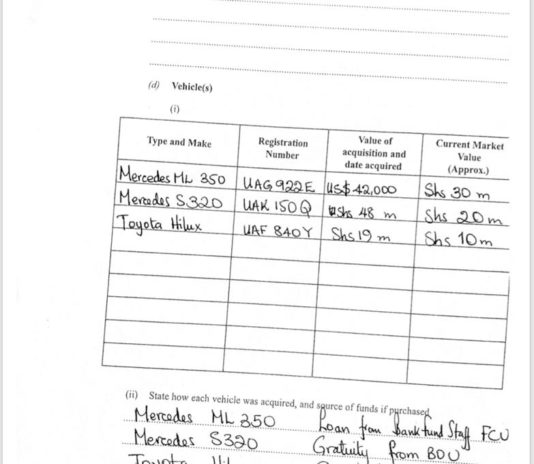 (d) Vehicle(s)
(i)
Type and Make Registration Number Value of acquisition and date acquired Current Market Value (Approx.)
Mercedes ML 350 UAG 922E US$ 42,000 Shs 30 m
Mercedes S320 UAK 150Q Shs 48 m Shs 20m
Toyota Hilux UAF 840Y Shs 19 m Shs 10m
(ii) State how each vehicle was acquired, and source of funds if purchased
Mercedes ML 350 Loan from Bank fund Staff FCU
Mercedes S320 Gratuity from BOU
Toyota